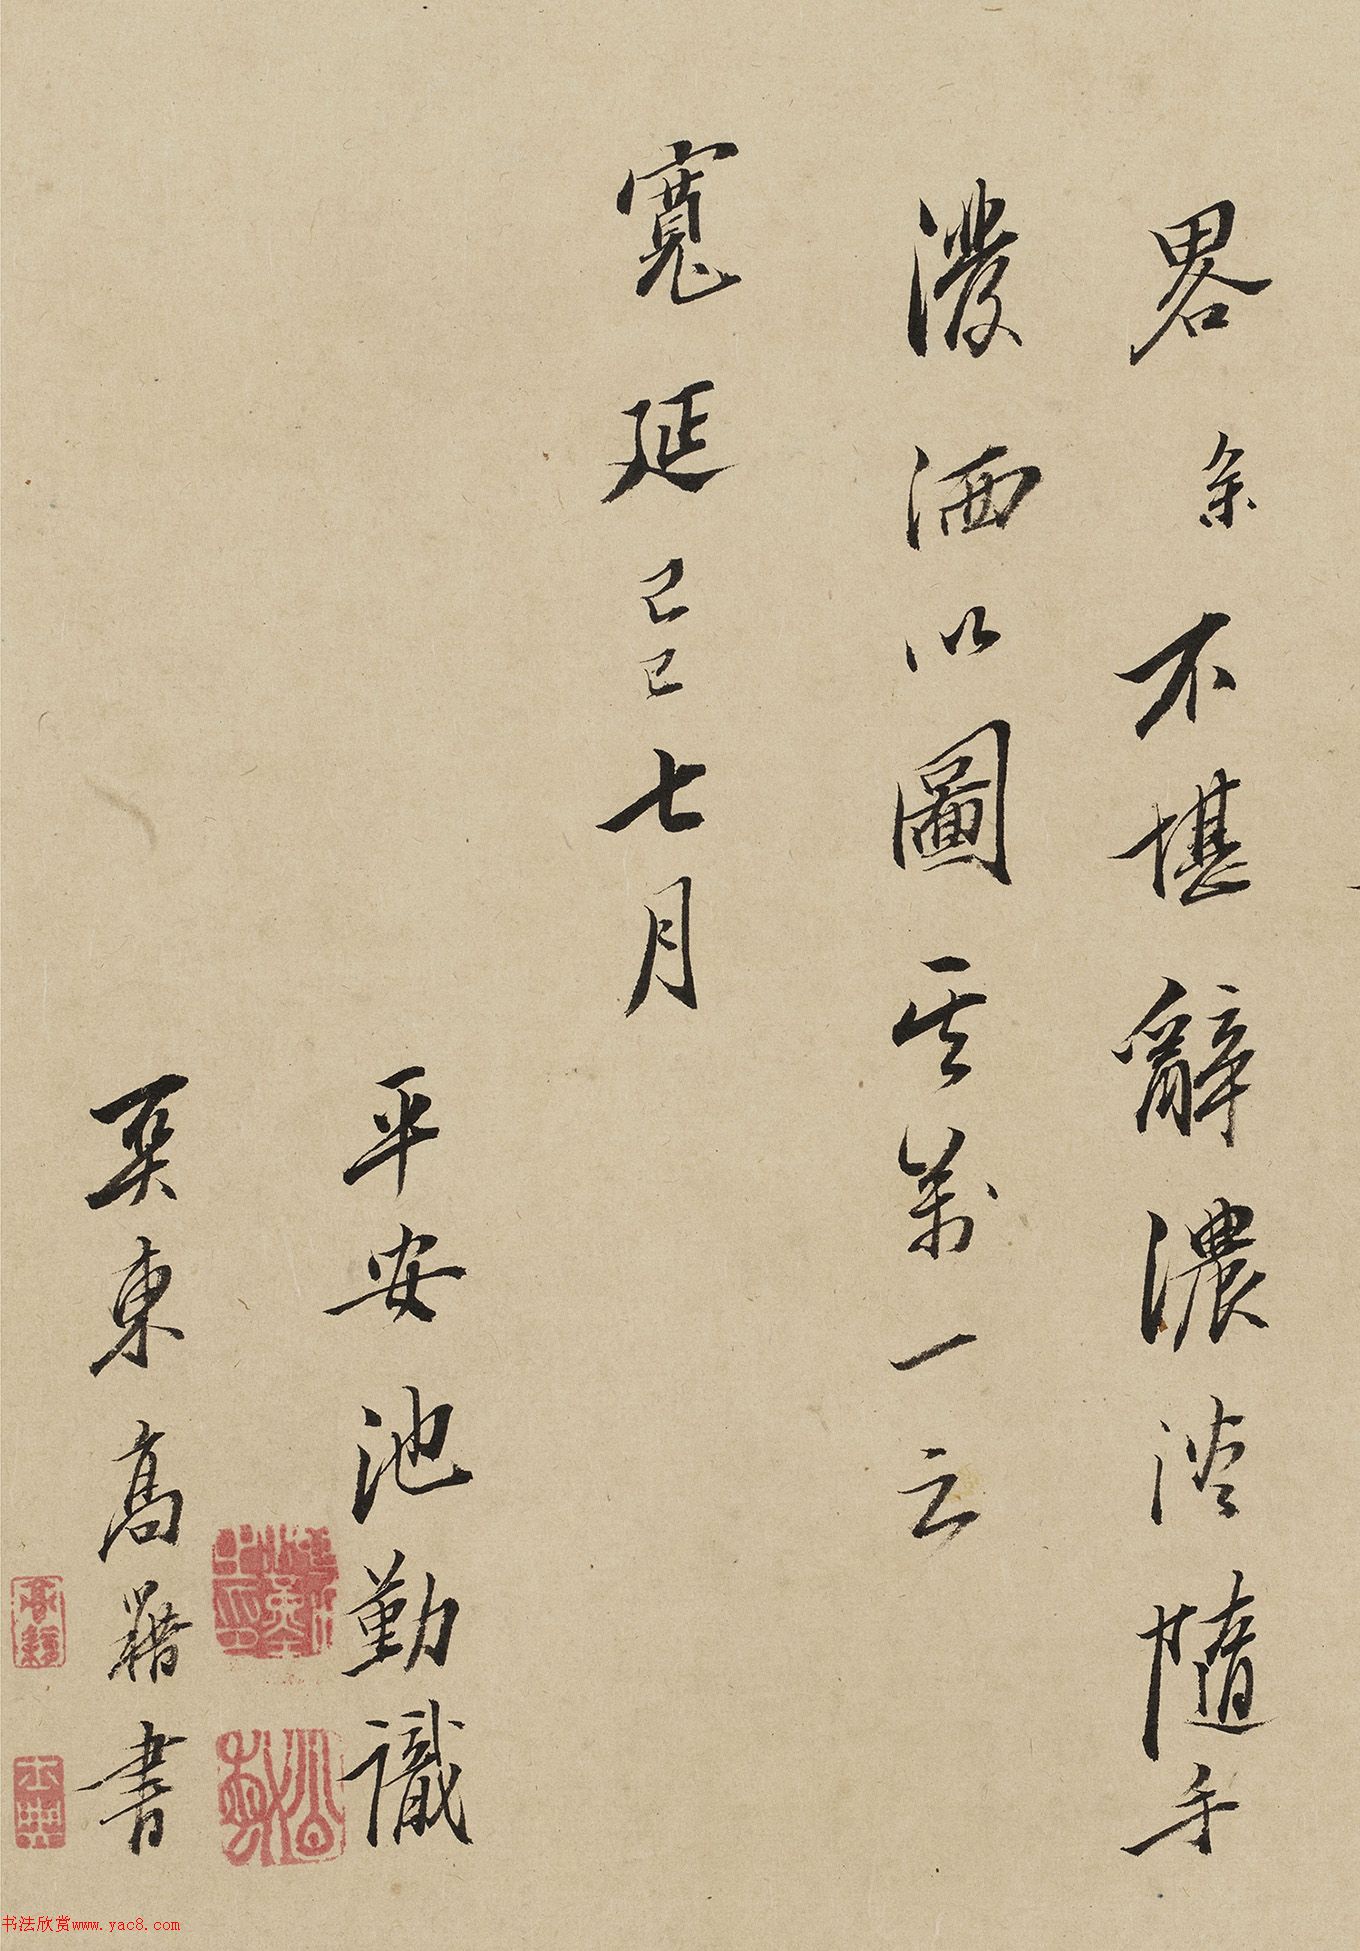 畧余不堪辭濃淡隨手
潑洒以圖其萬一云
寬延己巳七月
平安池勤識
吳東高籍書
书法欣赏www.yac8.com